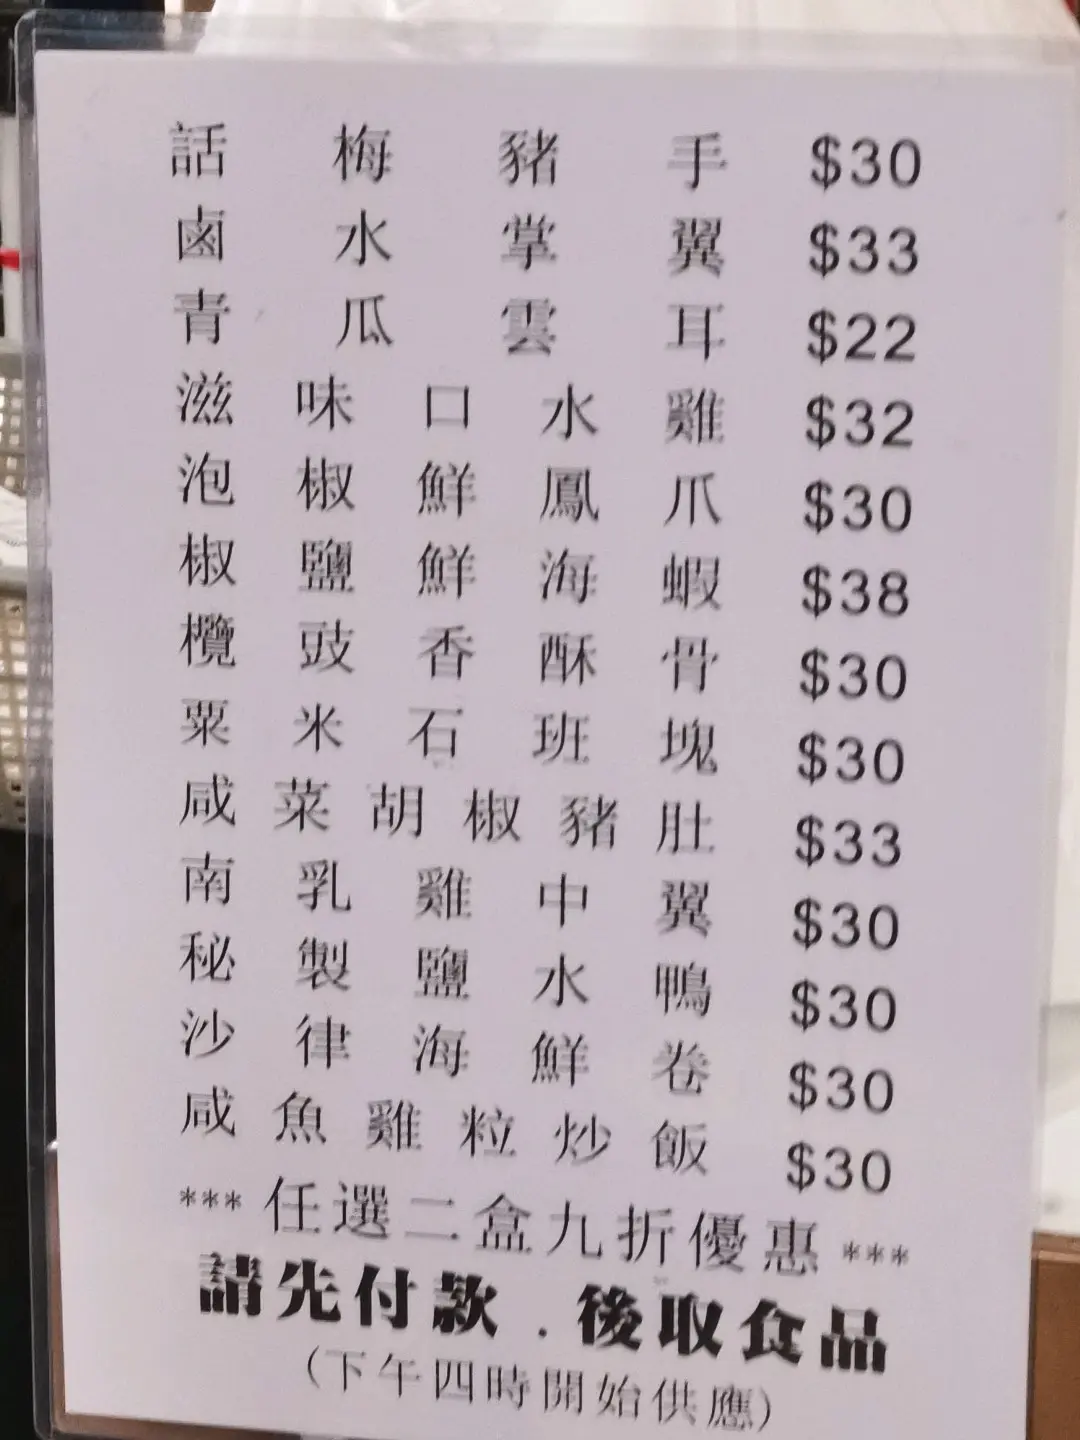 話梅豬手 $30
鹵水掌翼 $33
青瓜雲耳 $22
滋味口水雞 $32
泡椒鮮鳳爪 $30
椒鹽鮮海蝦 $38
欖豉香酥骨 $30
粟米石班塊 $30
咸菜胡椒豬肚 $33
南乳雞中翼 $30
秘製鹽水鴨 $30
沙律海鮮卷 $30
咸魚雞粒炒飯 $30
***任選二盒九折優惠***
請先付款.後取食品
(下午四時開始供應)